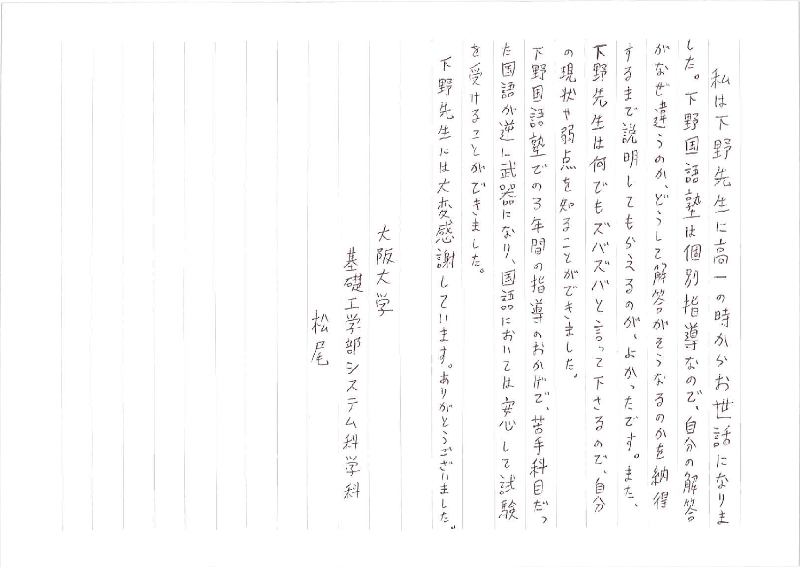 私は下野先生に高一の時からお世話になりま
した。下野国語塾は個別指導なので、自分の解答
がなぜ違うのか、どうして解答がそうなるのかを納得
するまで説明してもらえるのが、よかったです。また、
下野先生は何でもズバズバと言って下さるので、自分
の現状や弱点を知ることができました。
下野国語塾での3年間の指導のおかげで、苦手科目だっ
た国語が逆に武器になり、国語においては安心して試験
を受けることができました。
下野先生には大変感謝しています。ありがとうございました。
大阪大学
基礎工学部システム科学科
松尾